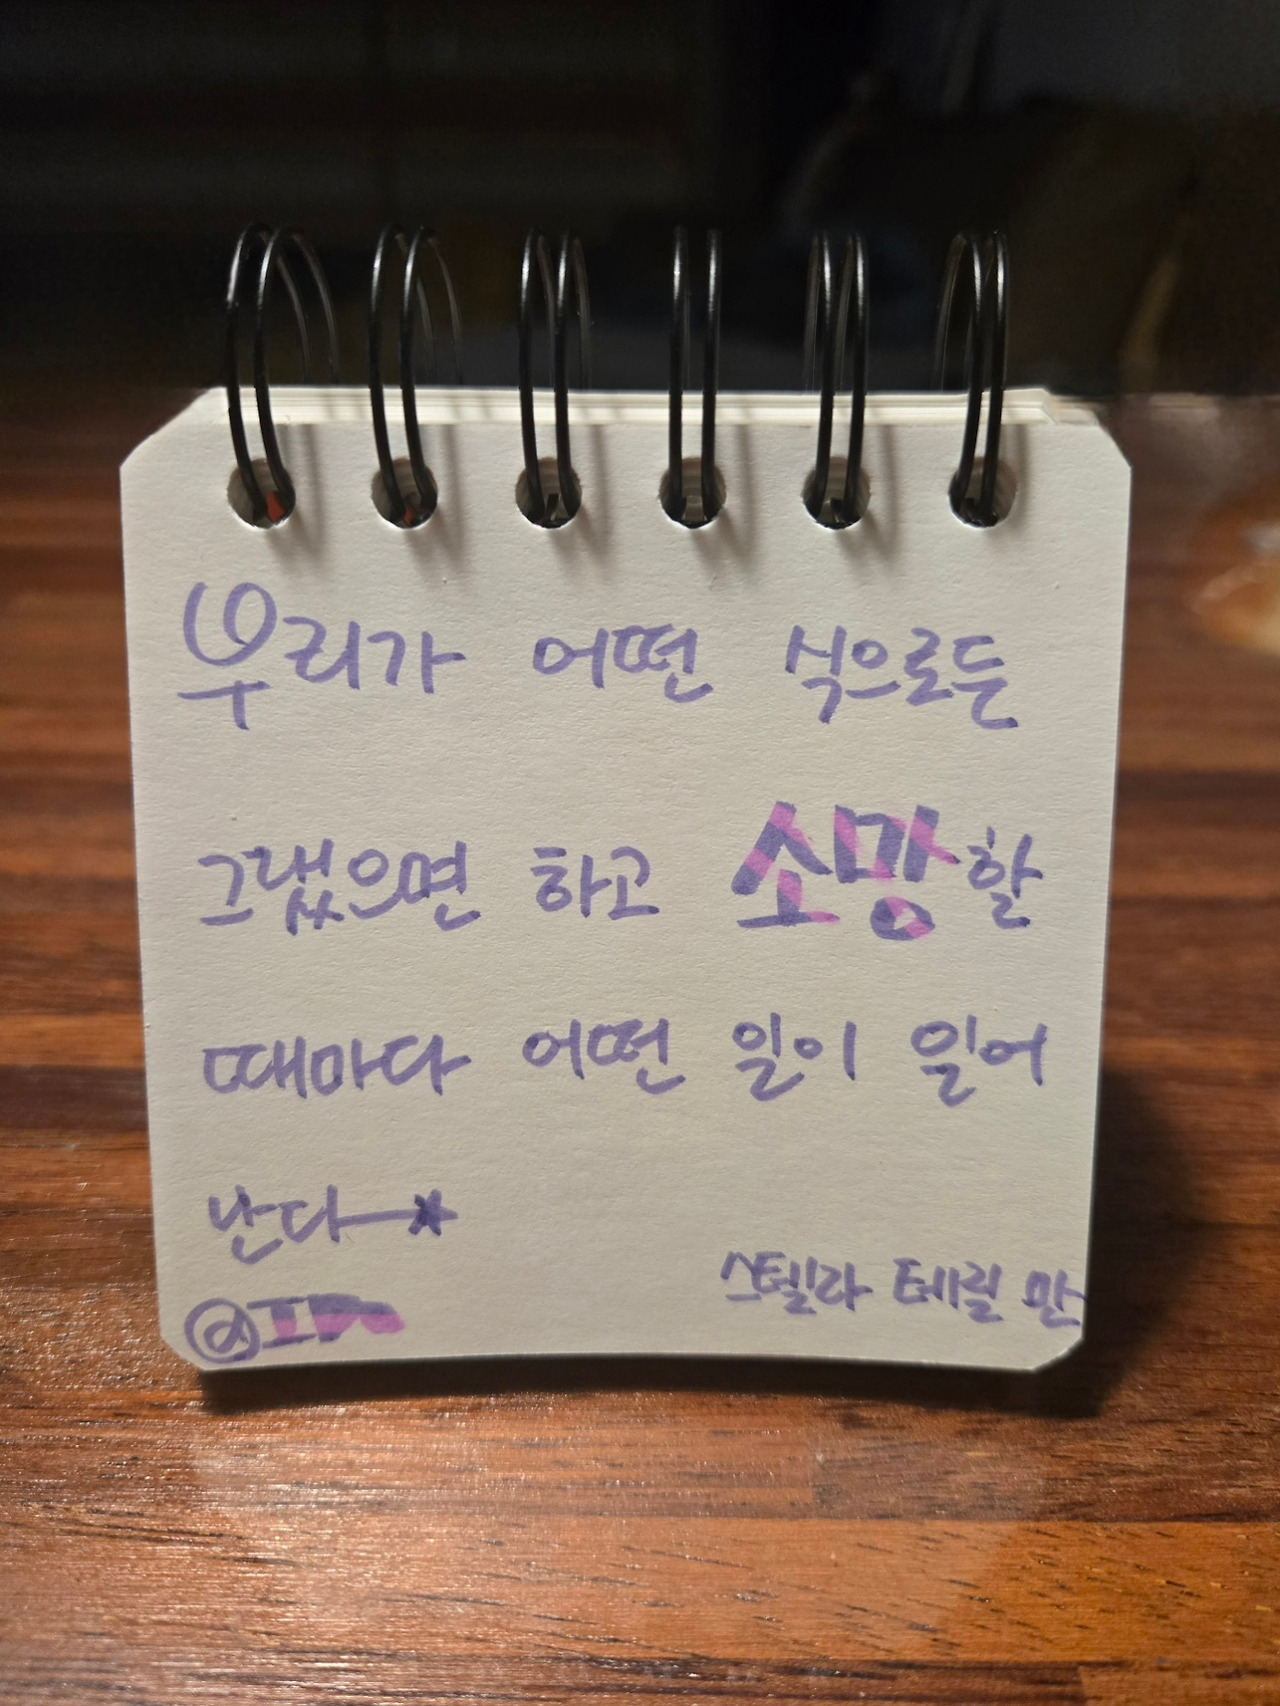 우리가 어떤 식으로든
그랬으면 하고 소망할
때마다 어떤 일이 일어
난다
스텔라 테릴 만